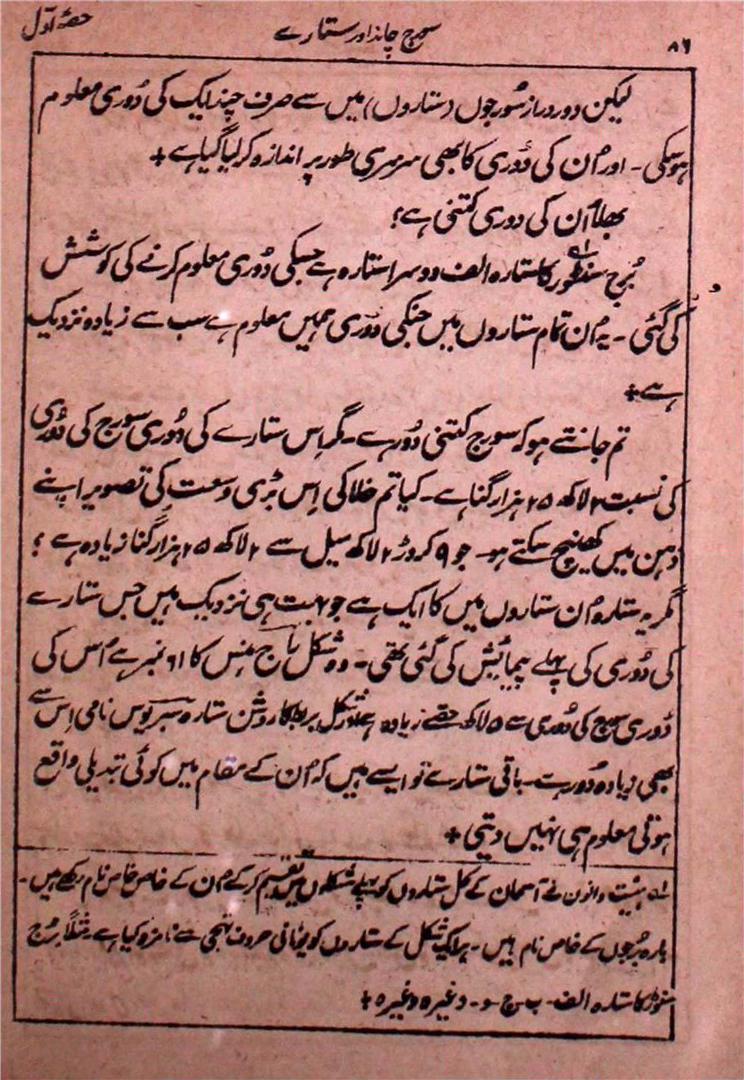 ۸۶ سورج چاند اور ستارے حصۂ اوّل
لیکن دور دراز سُورجوں (ستاروں) میں سے صرف چند ایک کی دُوری معلوم
ہو سکی ۔ اور اُن کی دُوری کا بھی سرسری طور پر اندازہ کر لیا گیا ہے +
بھلا اُن کی دوری کتنی ہے؟
بُرج سنطور کا ستارہ الف دوسرا ستارہ ہے جسکی دُوری معلوم کرنے کی کوشش
کی گئی ۔ یہ اُن تمام ستاروں میں جنکی دوری ہمیں معلوم ہے سب سے زیادہ نزدیک
ہے +
تم جانتے ہو کہ سورج کتنی دُور ہے ۔ مگر اِس ستارے کی دُوری سورج کی دُوری
کی نسبت ۲ لاکھ ۲۵ ہزار گنا ہے ۔ کیا تم خلا کی اِس بڑی وسعت کی تصویر اپنے
ذہن میں کھینچ سکتے ہو۔ جو ۹ کروڑ ۲ لاکھ میل سے ۲ لاکھ ۲۵ ہزار گنا زیادہ ہے ؟
مگر یہ ستارہ اُن ستاروں میں کا ایک ہے جو بہت ہی نزدیک ہیں جس ستارے
کی دُوری کی پہلے پیمائش کی گئی تھی ۔ وہ شکل ہنس کا ۶۱ نمبر ہے اُس کی
دُوری سورج کی دُوری سے ۵ لاکھ حصّے زیادہ ہے اور شکل بربط کا روشن ستارہ نامی اِس سے
بھی زیادہ دُور ہے۔ باقی ستارے تو ایسے ہیں کہ اُن کے مقام میں کوئی تبدیلی واقع
ہوتی معلوم ہی نہیں دیتی +
۱؎ ہیئت دانوں نے آسمان کے کل ستاروں کو پہلے شکلوں میں تقسیم کرکے اُن کے خاص خاص نام رکھے ہیں ۔
بارہ بُرجوں کے خاص نام ہیں ۔ ہر ایک شکل کے ستاروں کو یونانی حروف تہجی سے نامزد کیا ہے ۔ مثلاً بُرج
سنطور کا ستارہ الف ۔ ب ۔ ج ۔ د ۔ وغیرہ وغیرہ +